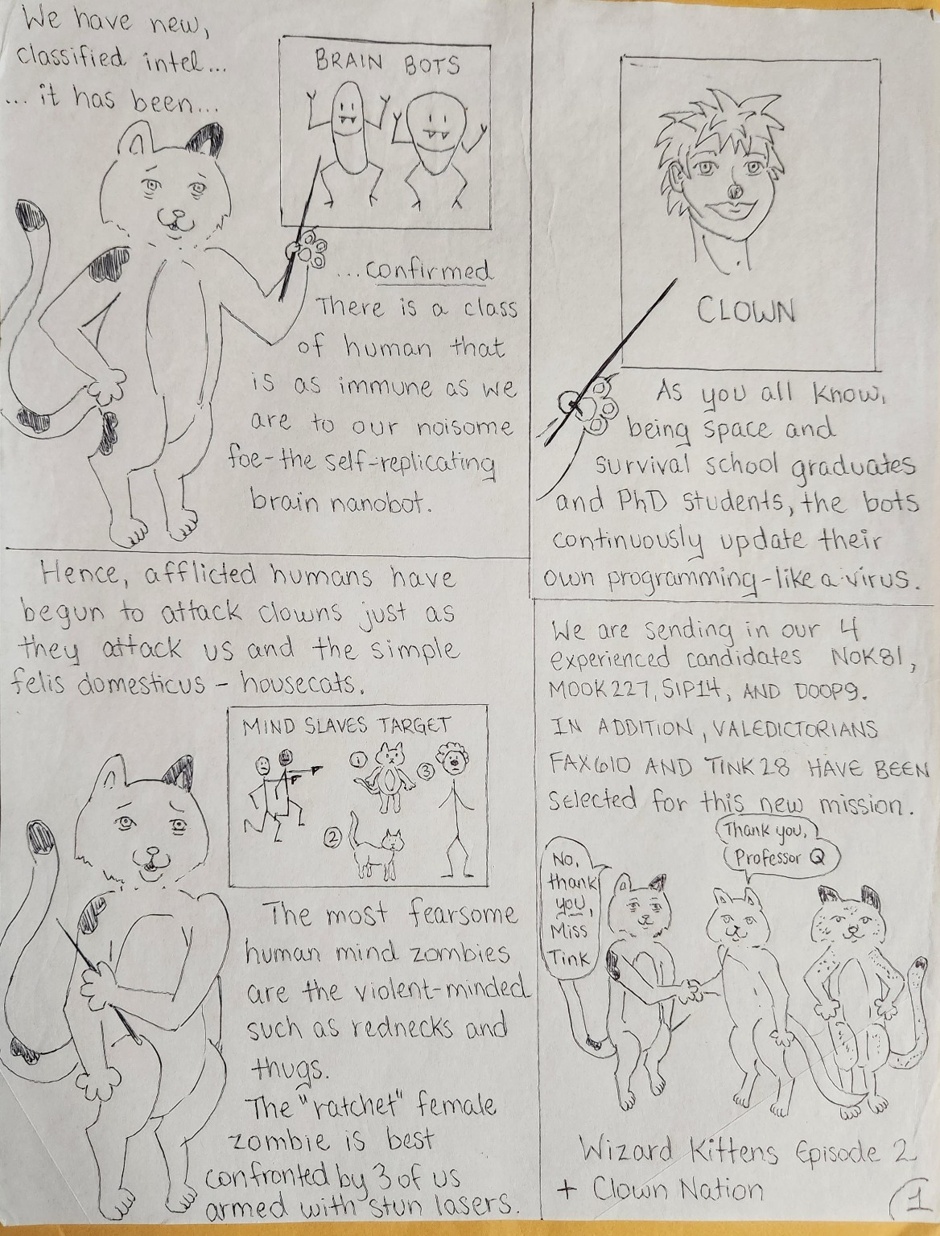 We have new,
classified intel...
... it has been...
BRAIN BOTS
...confirmed
There is a class
of human that
is as immune as we
are to our noisome
foe-the self-replicating
brain nanobot.
CLOWN
As you all know,
being space and
survival school graduates
and PhD students, the bots
continuously update their
own programming-like a virus.
Hence, afflicted humans have
begun to attack clowns just as
they attack us and the simple
felis domesticus - housecats.
MIND SLAVES TARGET
1
3
2
The most fearsome
human mind zombies
are the violent-minded
such as rednecks and
thugs.
The "ratchet" female
zombie is best
confronted by 3 of us
armed with stun lasers.
We are sending in our 4
experienced candidates NOK81,
MOOK227, SIP14, AND DOOP9.
IN ADDITION, VALEDICTORIANS
FAX610 AND TINK28 HAVE BEEN
selected for this new mission.
Thank you,
Professor Q
No,
thank
you,
Miss
Tink
Wizard Kittens Episode 2
+ Clown Nation
1